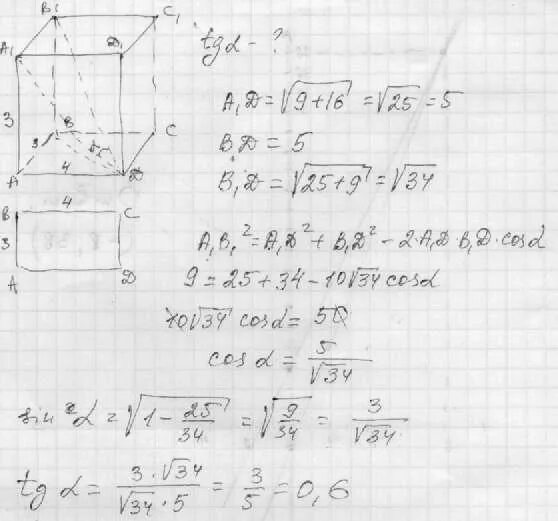 B₁ C₁
A₁ D₁
tg α - ?
A₁D = √(9+16) = √25 = 5
3
3 B C
BD = 5
α
4
A D
B₁D = √(25+9) = √34
B 4 C
3
A D
A₁B₁² = A₁D² + B₁D² - 2·A₁D·B₁D·cosα
9 = 25 + 34 - 10√34 cosα
10√34 cosα = 50
cos α = 5/√34
sin α = √(1 - 25/34) = √(9/34) = 3/√34
tg α = (3·√34)/(√34·5) = 3/5 = 0,6